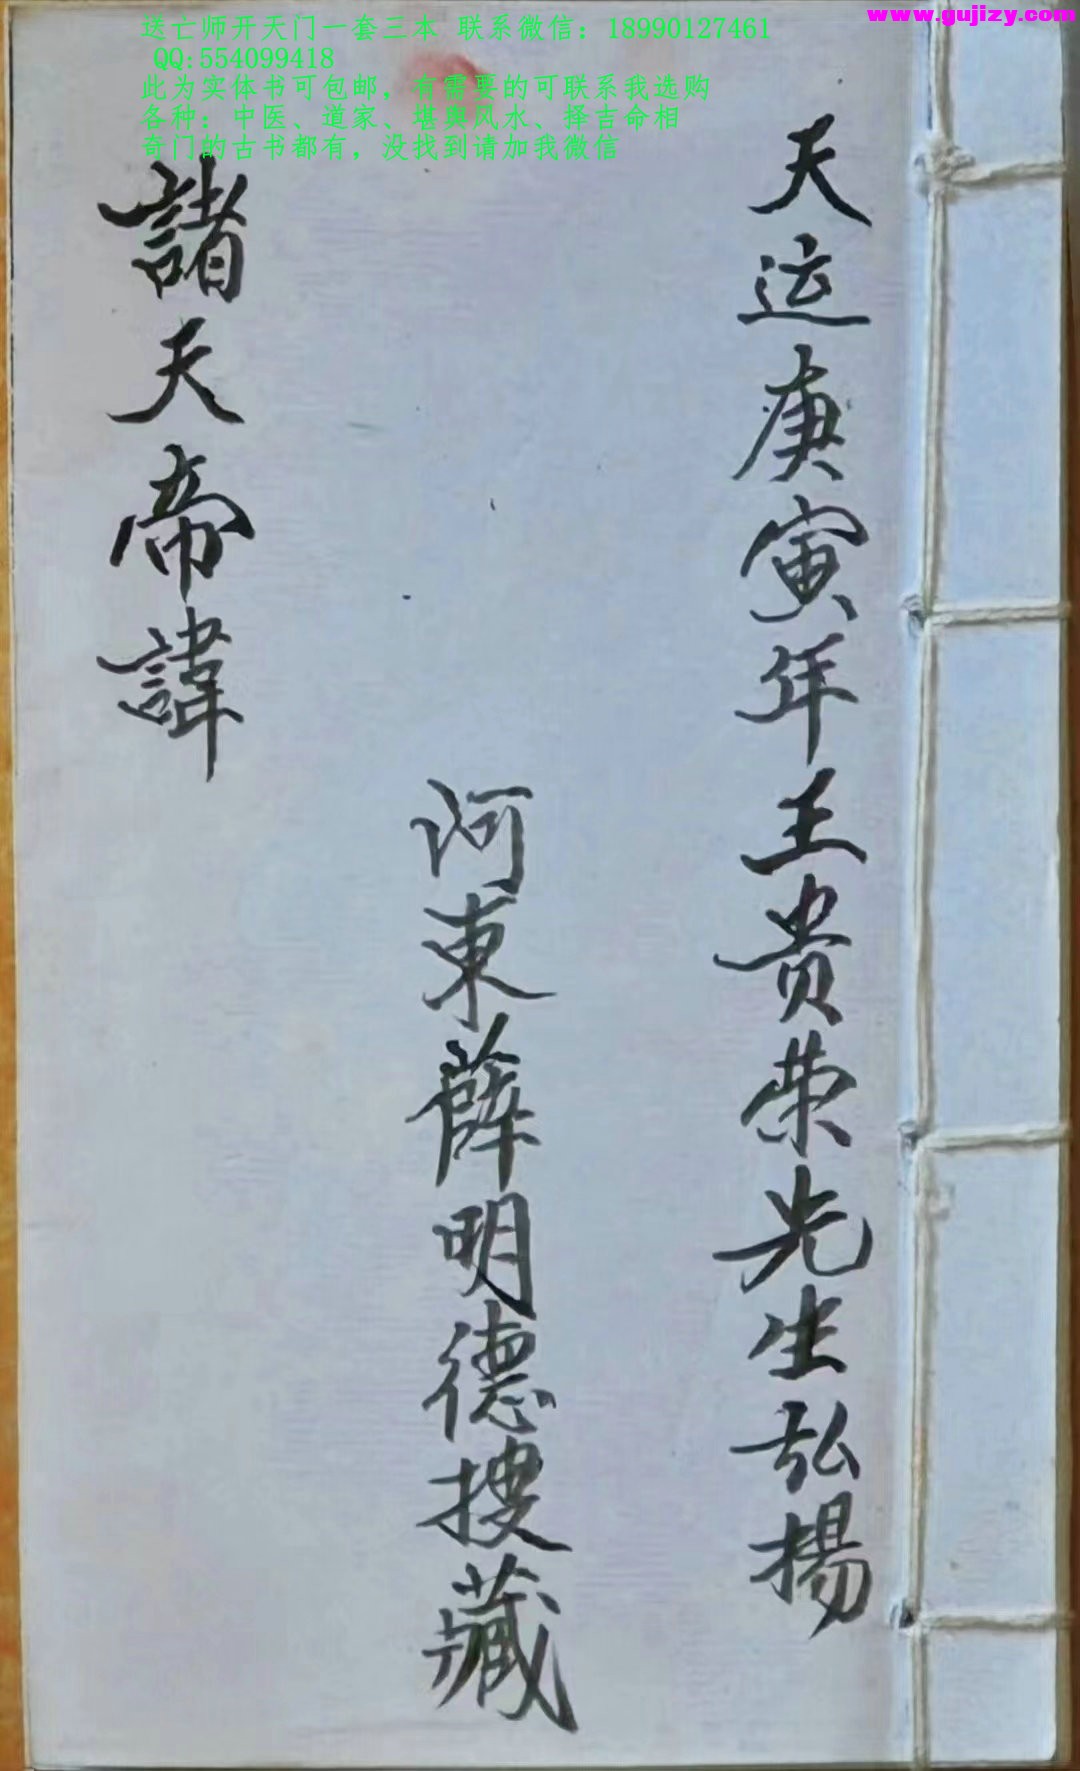 www.gujizy.com
送亡师开天门一套三本 联系微信：18990127461
QQ:554099418
此为实体书可包邮，有需要的可联系我选购
各种：中医、道家、堪舆风水、择吉命相
奇门的古书都有，没找到请加我微信
天运庚寅年王贵荣先生弘揚
河東薛明德搜藏
諸天帝諱